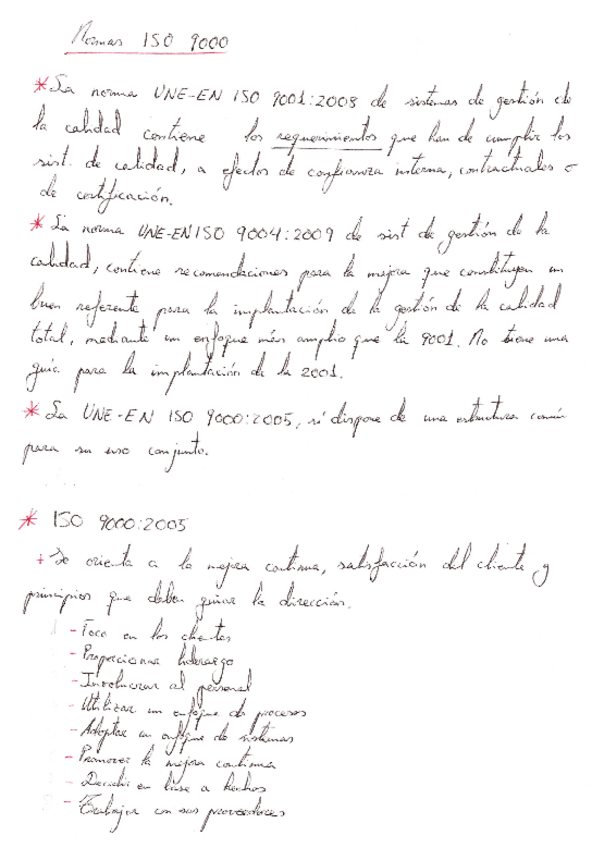 Normas ISO 9000
* La norma UNE-EN ISO 9001:2008 de sistemas de gestión de
la calidad contiene los requerimientos que han de cumplir los
sist. de calidad, a efectos de confianza interna, contractuales o
de certificación.
* La norma UNE-EN ISO 9004:2009 de sist de gestión de la
calidad, contiene recomendaciones para la mejora que constituyen un
buen referente para la implantación de la gestión de la calidad
total, mediante un enfoque más amplio que la 9001. No tiene una
guía para la implantación de la 2001.
* La UNE-EN ISO 9000:2005, sí dispone de una estructura común
para su uso conjunto.
* ISO 9000:2005
+ Se orienta a la mejora continua, satisfacción del cliente y
principios que deben guiar la dirección.
- Foco en los clientes
- Proporcionar liderazgo
- Involucrar al personal
- Utilizar un enfoque de procesos
- Adoptar un enfoque de sistemas
- Promover la mejora continua
- Decidir en base a hechos
- Trabajar con sus proveedores